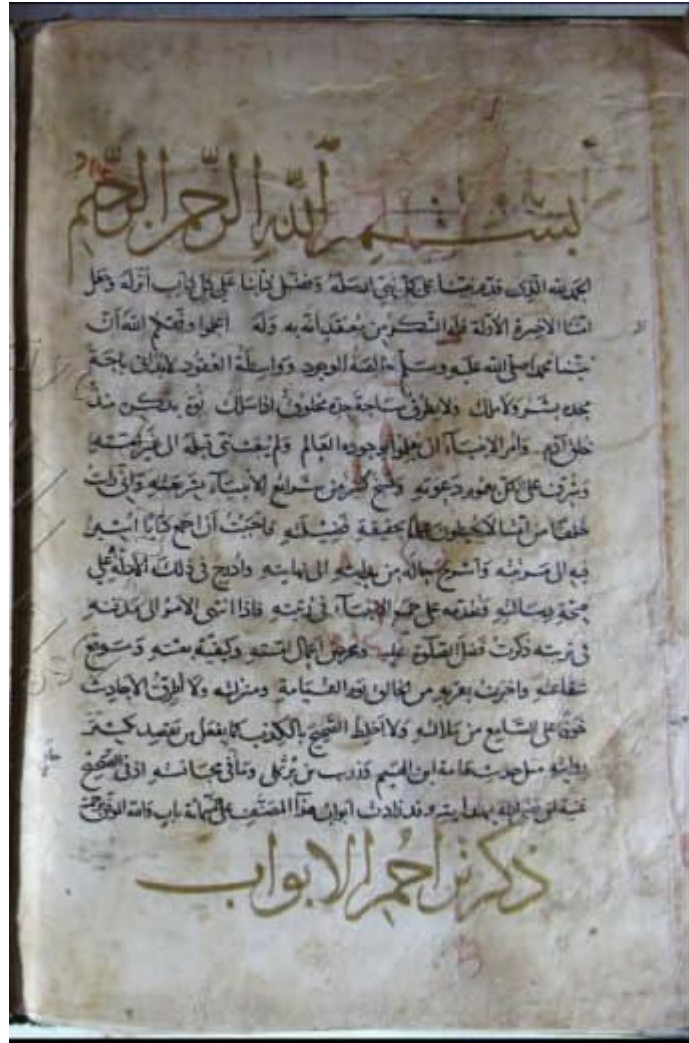 بسم الله الرحمن الرحيم
الحمد لله الذى قدم نبينا على كل نبي ارسله وفضل كتابنا على كل كتاب أنزله وجعل
امتنا الاخيرة الاولة فله الشكر من معتقد انه به وله اعلموا وفقكم الله أن
نبينا محمدا صلى الله عليه وسلم خالصة الوجود وواسطة العقود لا يدانى باحة
مجده بشر ولا ملك ولا يطرق ساحة جده مخلوق سلك نوه بذكره منذ
خلق آدم وأمر الانبياء ان يعلموا بوجوده العالم ولم يبعث نبي قبله الى غير امته
وشرف على الكل بعموم دعوته ونسخ كثير من شرائع الأنبياء بشرعته وانى رايت
خلقا من امتنا لا يحيطون علما بحقيقة فضيلته فاحببت أن اجمع كتابا اشير
فيه الى مرتبته وأشرح حاله من بدايته الى نهايته وادرج فى ذلك الادلة على
صحة رسالته وتقدمه على جميع الانبياء فى رتبته فاذا انتهى الامر الى مدفنه
فى تربته ذكرت فضل الصلاة عليه وعرض اعمال امته وكيفية بعثته وموقع
شفاعته واخبرت بقربه من الخالق يوم القيامة ومنزلته ولا أطرق الاحاديث
خوفا على السامع من ملالته ولا اخلط الصحيح بالكذب كما يفعل من يقصد تكثير
روايته مثل حديث هامة ابن الهيم وزريب بن برثملى وفى الصحيح
غنية لمن وقد زادت ابواب هذا المصنف على باب والله الموفق
ذكر تراجم الابواب